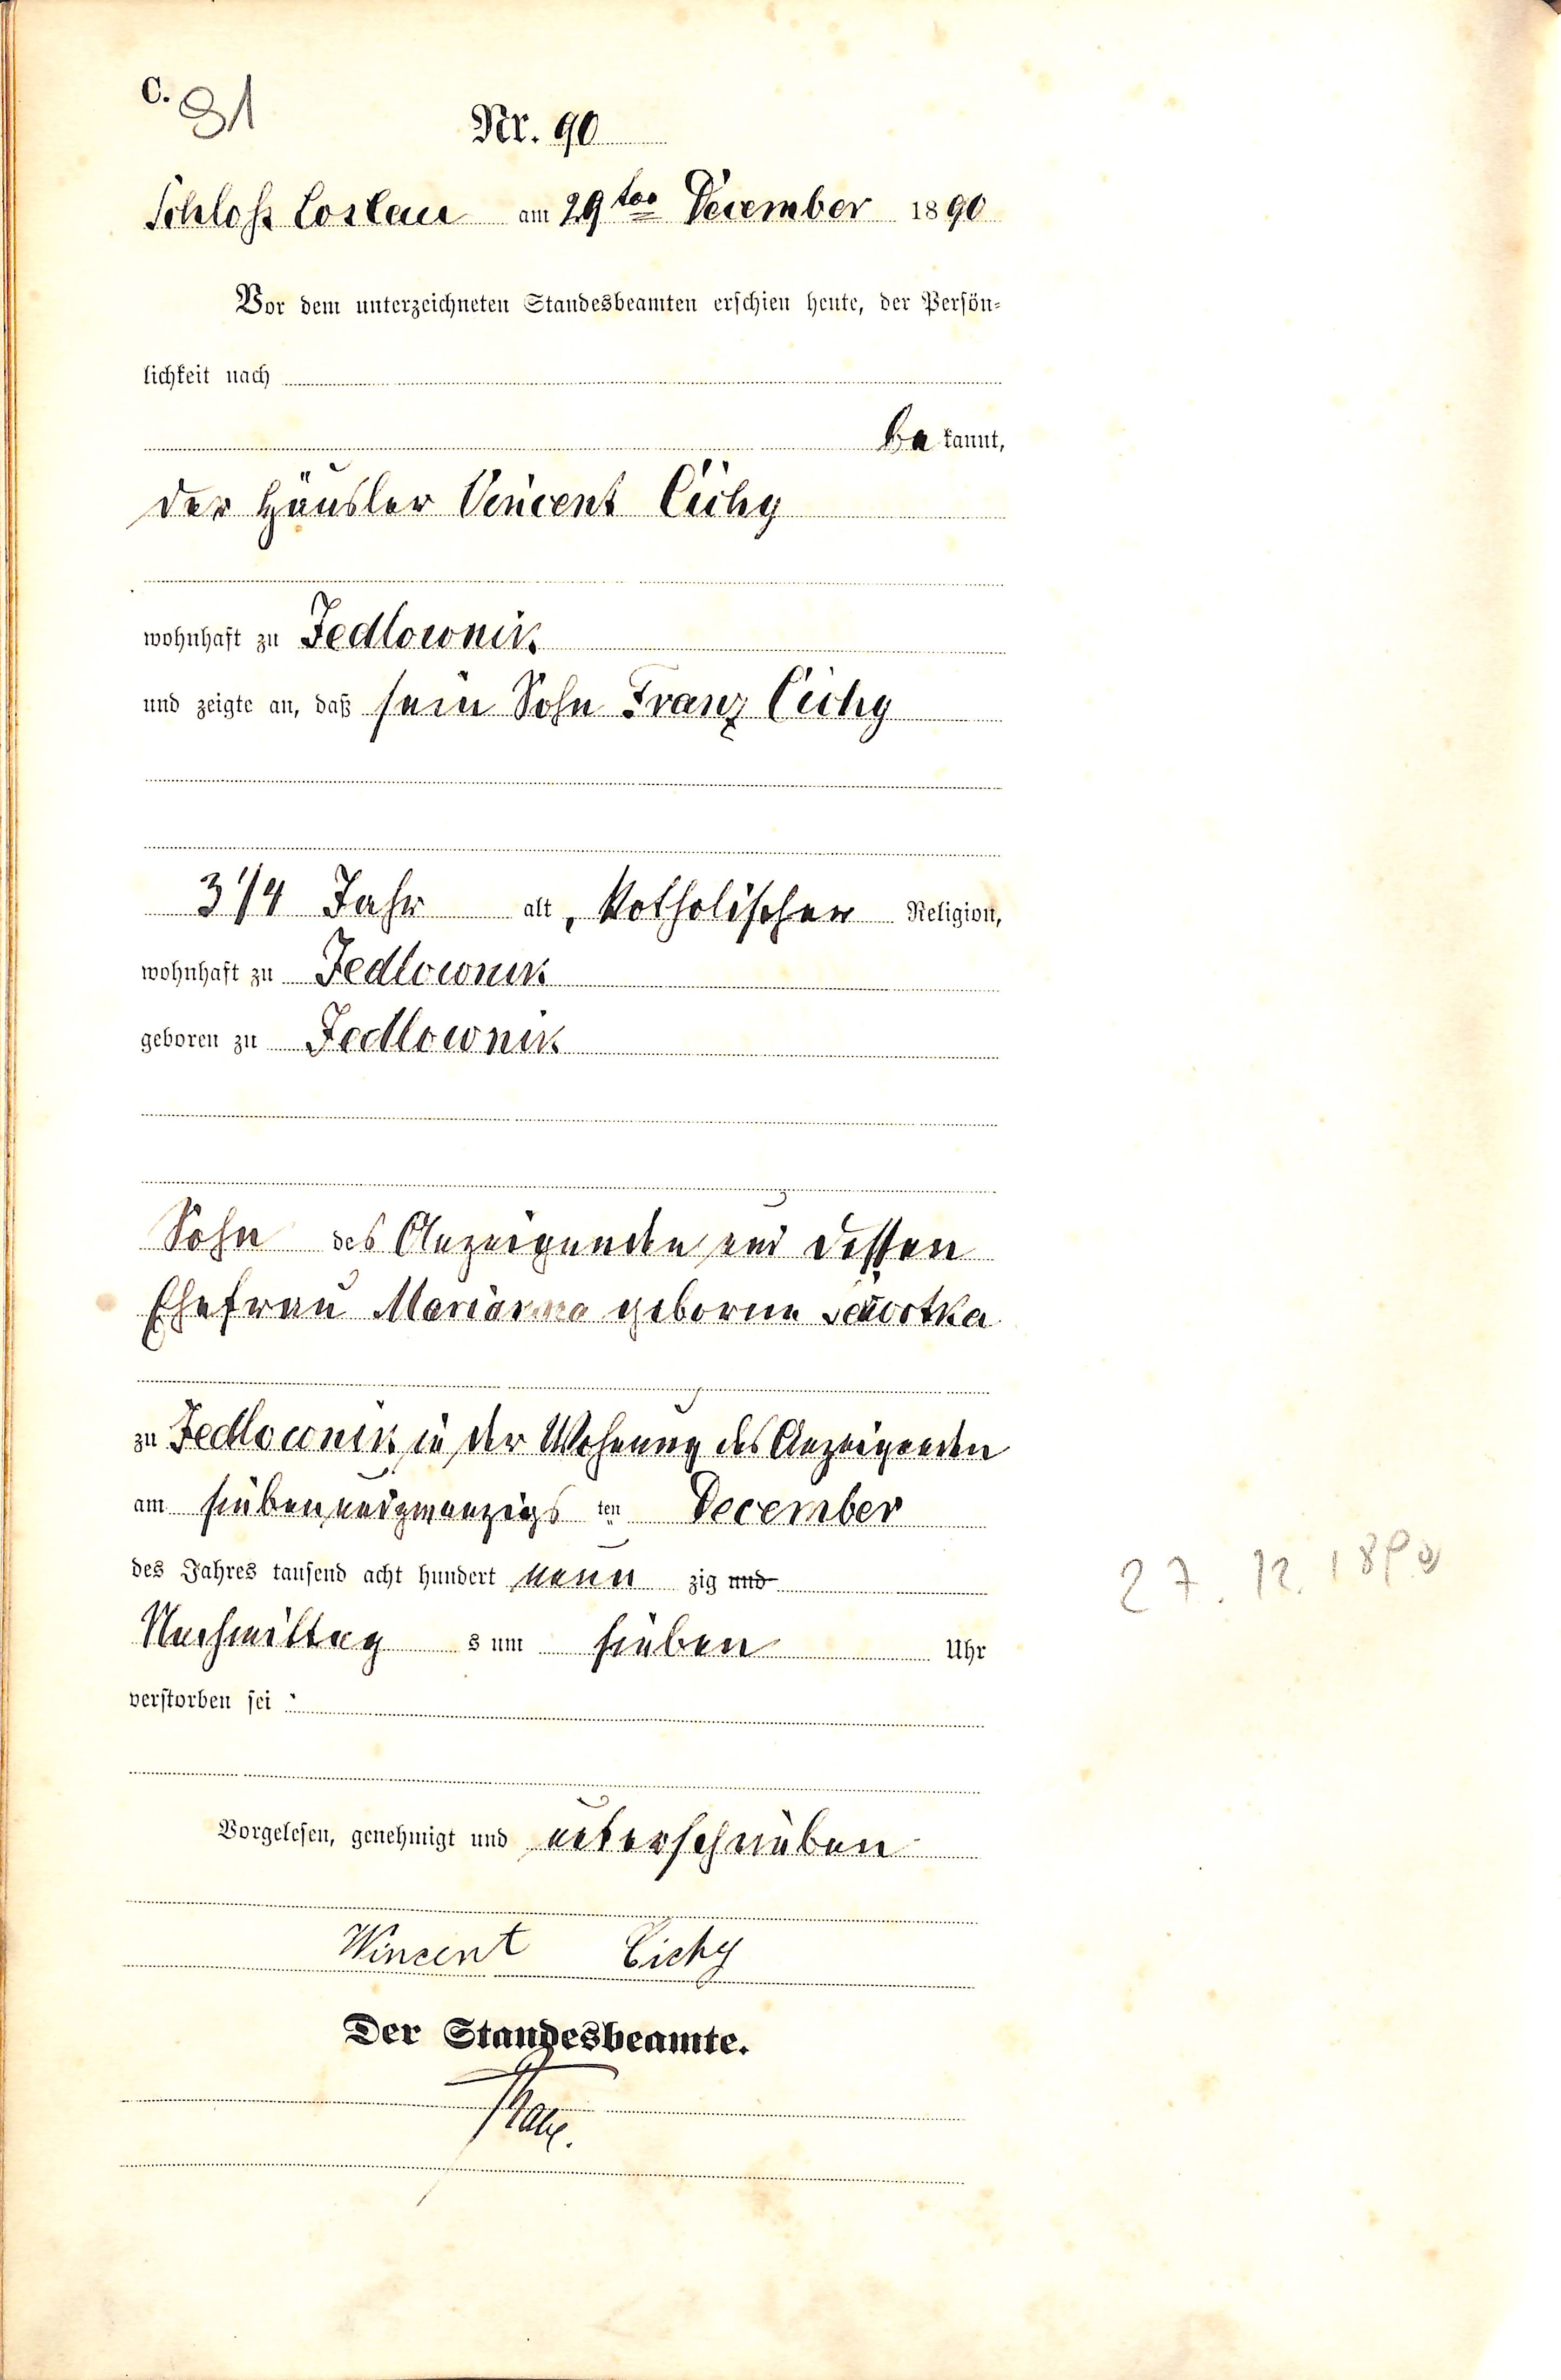 C.
91
Nr. 90
Schloß Loslau am 29ten December 1890
Vor dem unterzeichneten Standesbeamten erschien heute, der Persön-
lichkeit nach
be kannt,
der Häusler Vincent Cichy
wohnhaft zu Jedlownik
und zeigte an, daß sein Sohn Franz Cichy
3 1/4 Jahr alt, katholischer Religion,
wohnhaft zu Jedlownik
geboren zu Jedlownik
Sohn des Anzeigenden und dessen
Ehefrau Marianna geborene
zu Jedlownik in der Wohnung des Anzeigenden
am siebenundzwanzigs ten December
des Jahres tausend acht hundert neun zig und
Nachmittag s um sieben Uhr
verstorben sei
27. 12. 1890
Vorgelesen, genehmigt und unterschrieben
Wincent Cichy
Der Standesbeamte.